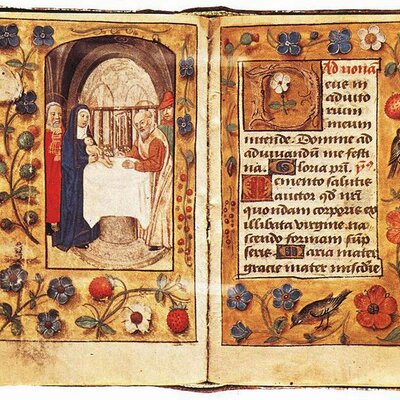 Ad nona
Deus in
adiuto
rium
meum
intende. Domine ad
adiuvandū me festi
na. Gloria pr̄i. ꝶo
Memento salutis
auctor qd nr̄i
quondam corporis ex
illibata virgine na
scendo formam sūp
seris. Maria mater
gracie mater miscdie